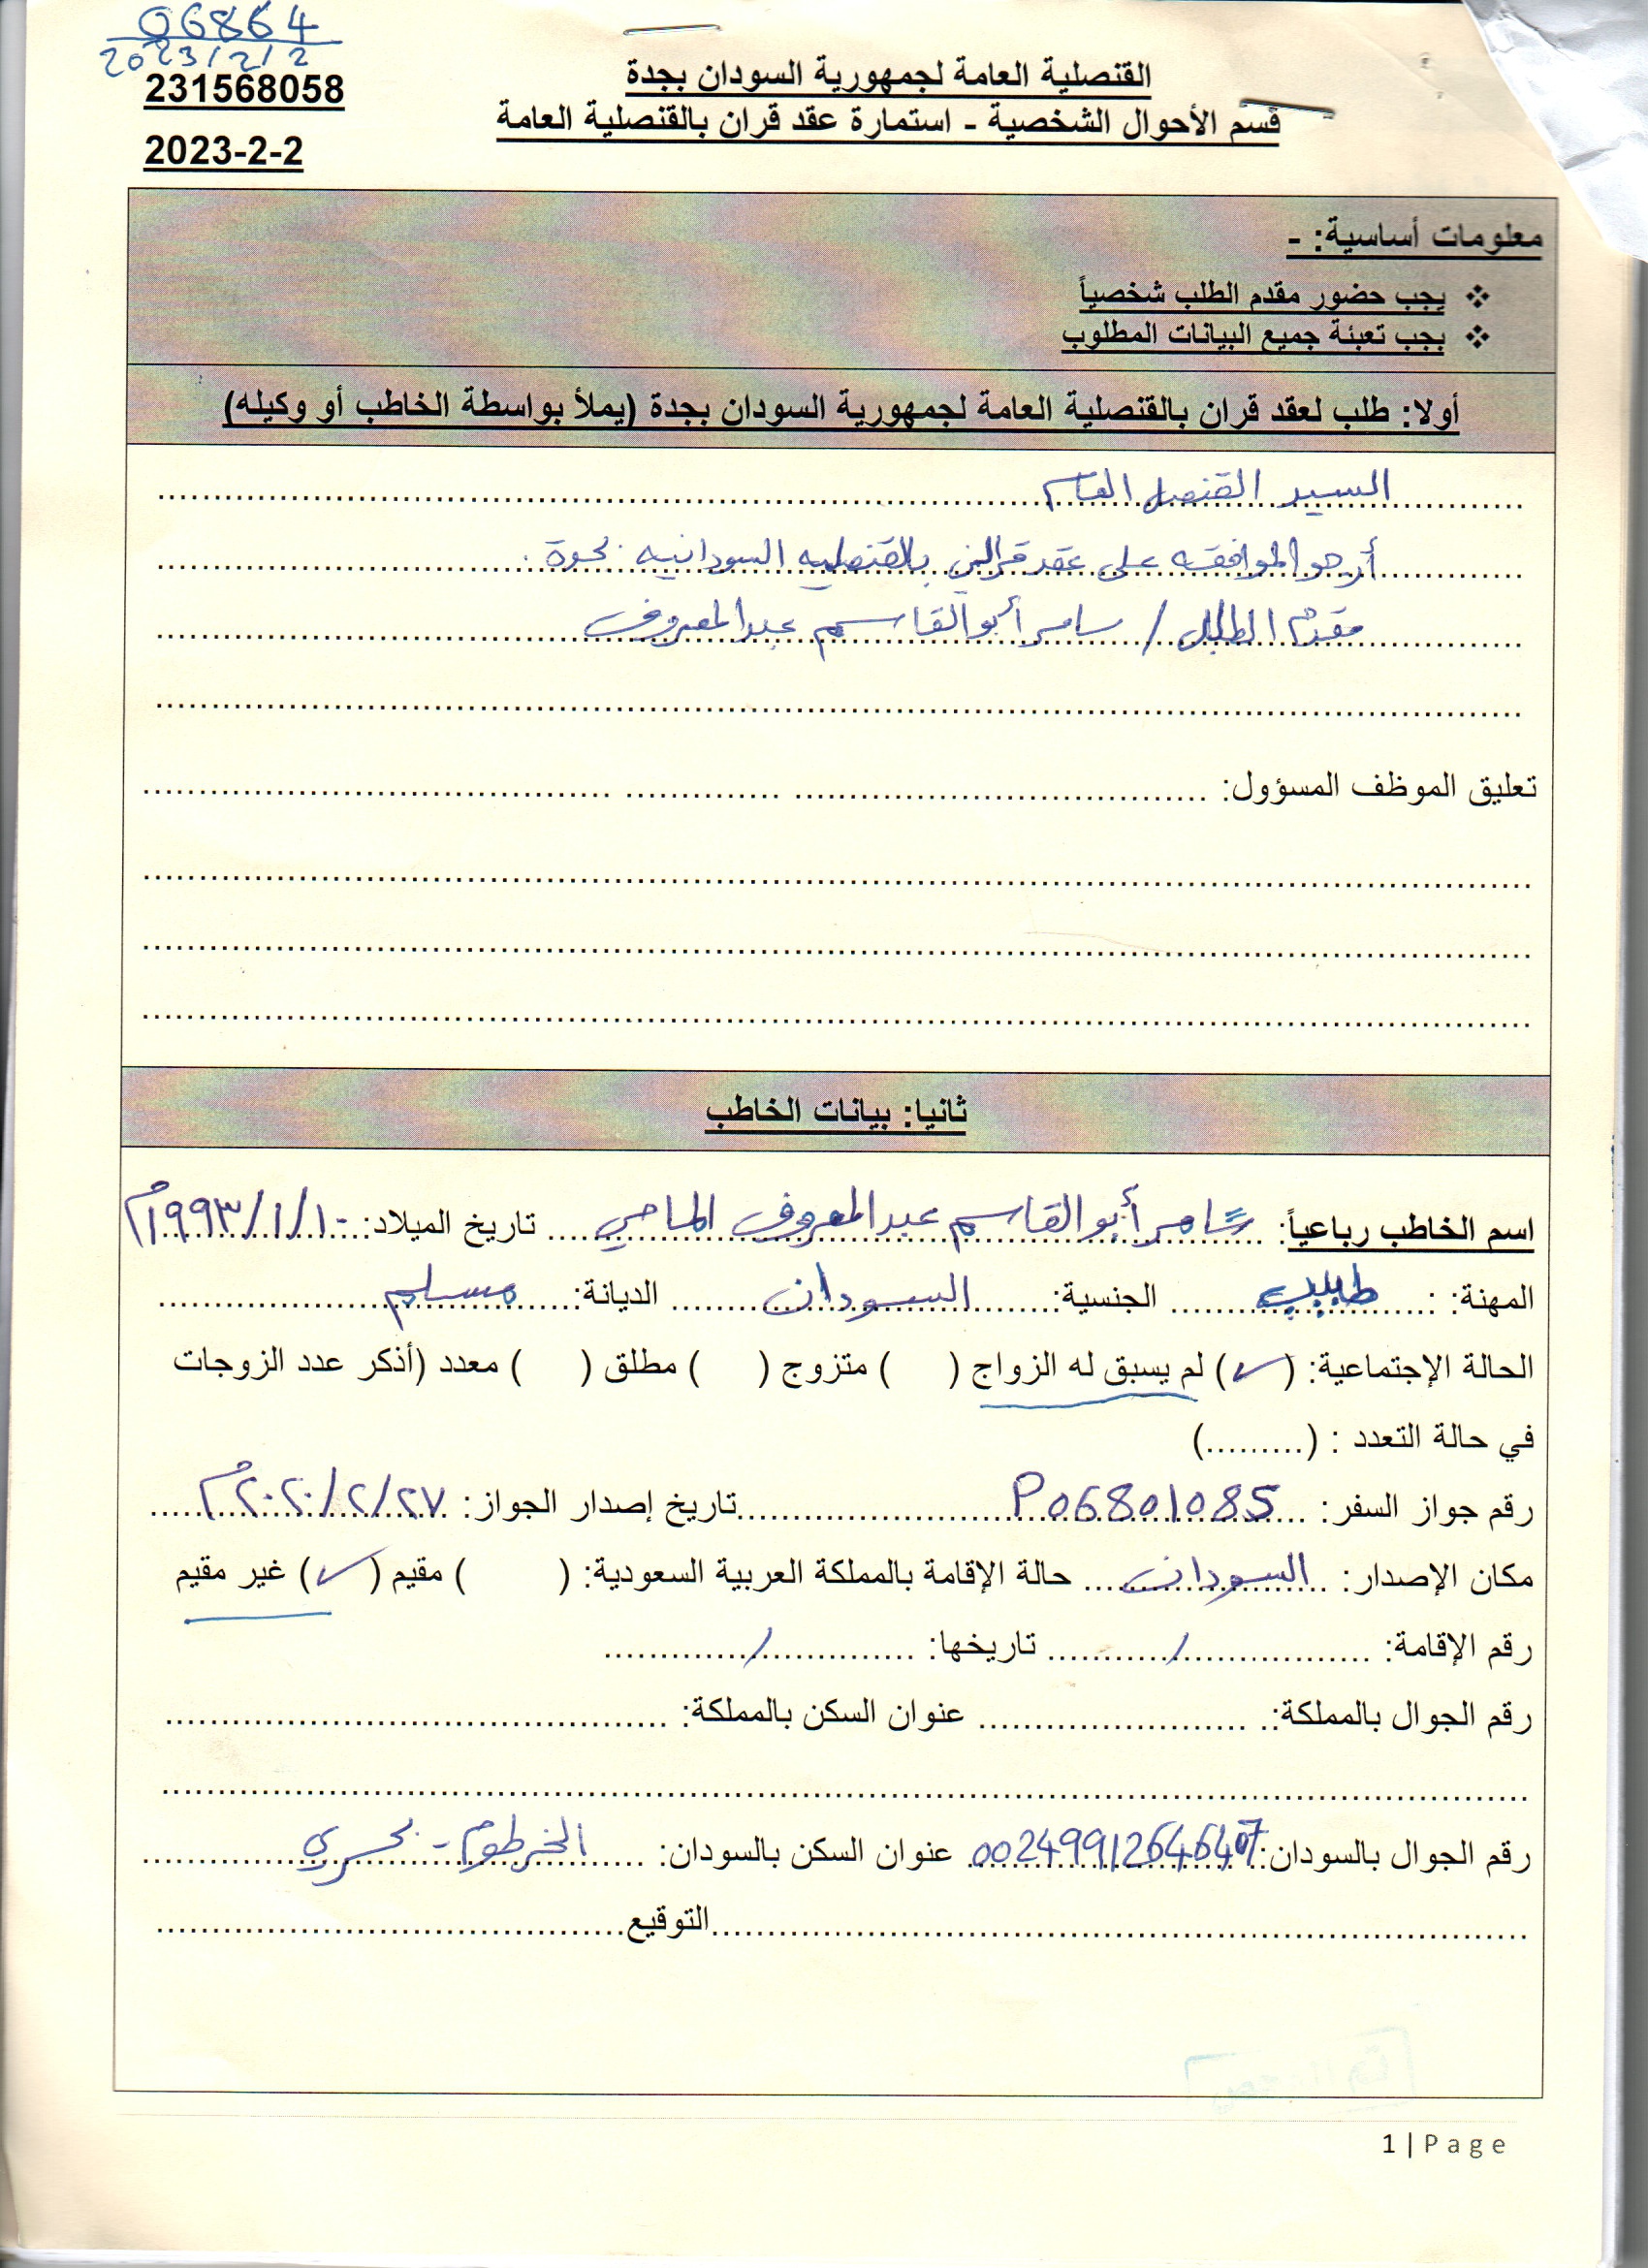 06864
2023/2/2
231568058
2023-2-2
القنصلية العامة لجمهورية السودان بجدة
قسم الأحوال الشخصية - استمارة عقد قران بالقنصلية العامة
معلومات أساسية: -
❖ يجب حضور مقدم الطلب شخصياً
❖ يجب تعبئة جميع البيانات المطلوب
أولا: طلب لعقد قران بالقنصلية العامة لجمهورية السودان بجدة (يملأ بواسطة الخاطب أو وكيله)
السيد القنصل العام
أرجو الموافقه على عقد قراني بالقنصليه السودانيه بجدة.
مقدم الطلب / سامر أبو القاسم عبد المعروف
تعليق الموظف المسؤول:
ثانيا: بيانات الخاطب
اسم الخاطب رباعياً: سامر أبو القاسم عبد المعروف الماحي تاريخ الميلاد: ١٩٩٣/١/١٠م
المهنة: : طبيب الجنسية: السودان الديانة: مسلم
الحالة الإجتماعية: (✓) لم يسبق له الزواج ( ) متزوج ( ) مطلق ( ) معدد (أذكر عدد الزوجات
في حالة التعدد : (.........)
رقم جواز السفر: P06801085 تاريخ إصدار الجواز: ٢٠٢٠/٢/٢٧م
مكان الإصدار: السودان حالة الإقامة بالمملكة العربية السعودية: ( ) مقيم (✓) غير مقيم
رقم الإقامة: / تاريخها: /
رقم الجوال بالمملكة: عنوان السكن بالمملكة:
رقم الجوال بالسودان: عنوان السكن بالسودان: الخرطوم - بحري
التوقيع
1 | Page